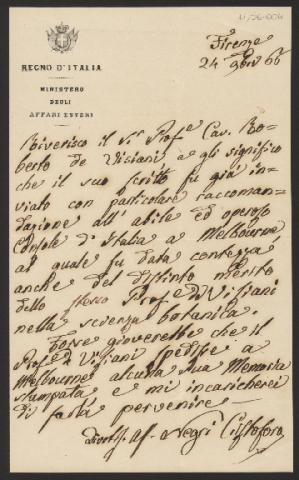 Firenze
24 9bre 66
REGNO D'ITALIA
MINISTERO
DEGLI
AFFARI ESTERI
Riverisco il Sr. Profe Cav. Ro-
berto de Visiani e gli significo
che il suo scritto fu già in-
viato con particolare raccoman-
dazione all'abile ed operoso
Console d'Italia a Melbourne
al quale fu data contezza
anche del distinto merito
dello stesso Profe de Visiani
nella scienza botanica.
Forse gioverebbe che il
Profe de Visiani spedisse a
Melbourne alcuna sua Memoria
stampata, e mi incaricherei
di farla pervenire.
Devotiss. Negri Cristoforo